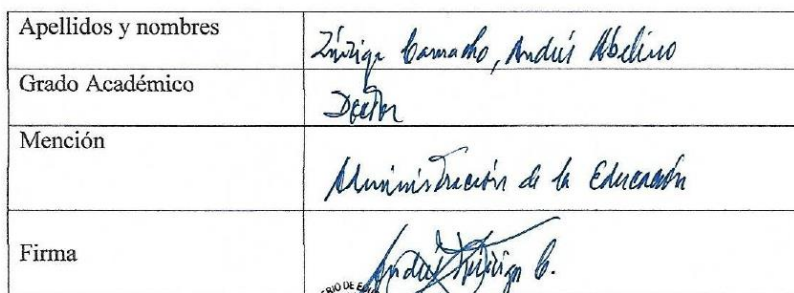 Apellidos y nombres
Zúñiga Camacho, Andrés Abelino
Grado Académico
Doctor
Mención
Administración de la Educación
Firma
Andrés Zúñiga C.